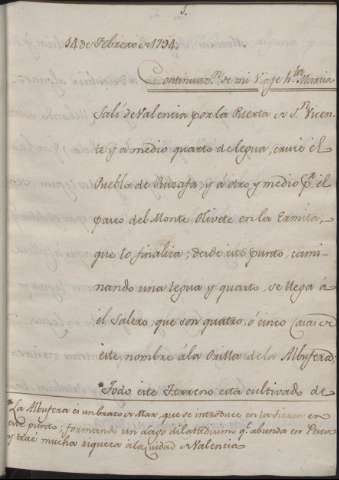 1.
14 de Febrero de 1794.
Continuaz.n de mi Viaje h.ta Murcia
Sali de Valencia por la Puerta de S.n Vicen-
te y a medio quarto de legua, cruzé el
Pueblo de Rusafa; y á otro y medio p.r el
paseo del Monte Olivete en la Ermita,
que lo finaliza; desde este punto, cami-
nando una legua y quarto, se llega á
el Salero, que son quatro, ó cinco Casas de
este nombre á la Orilla de la Albufera.
*Todo este Terreno está cultivado de
*La Albufera es un brazo de Mar, que se introduce en la tierra en
este punto; formando un Lago dilatadisimo q.e abunda en Pesca
y trae mucha riqueza á la Ciudad de Valencia